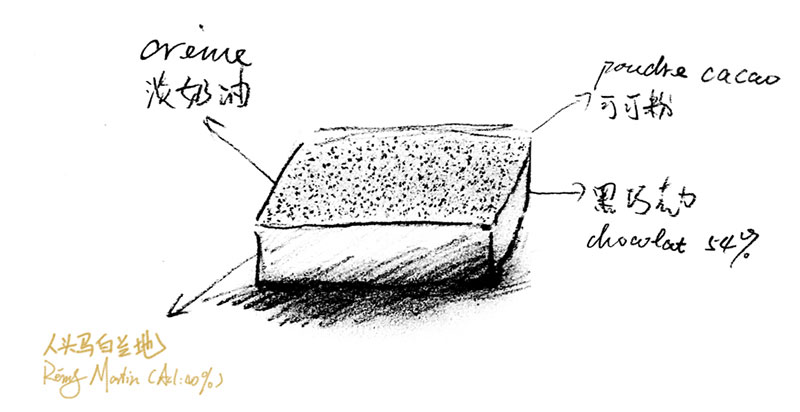 crème
淡奶油
poudre cacao
可可粉
黑巧克力
chocolat 54%
人头马白兰地
Rémy Martin (Acl:40%)